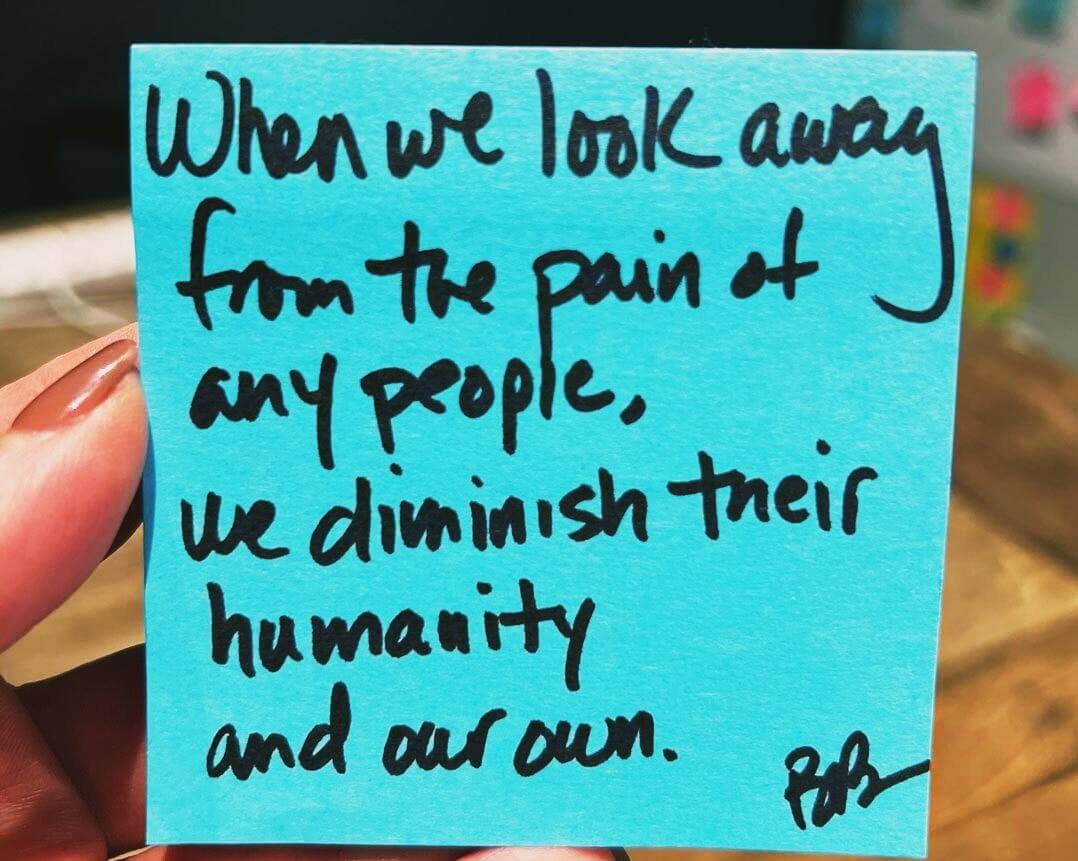 When we look away
from the pain of
any people,
we diminish their
humanity
and our own.